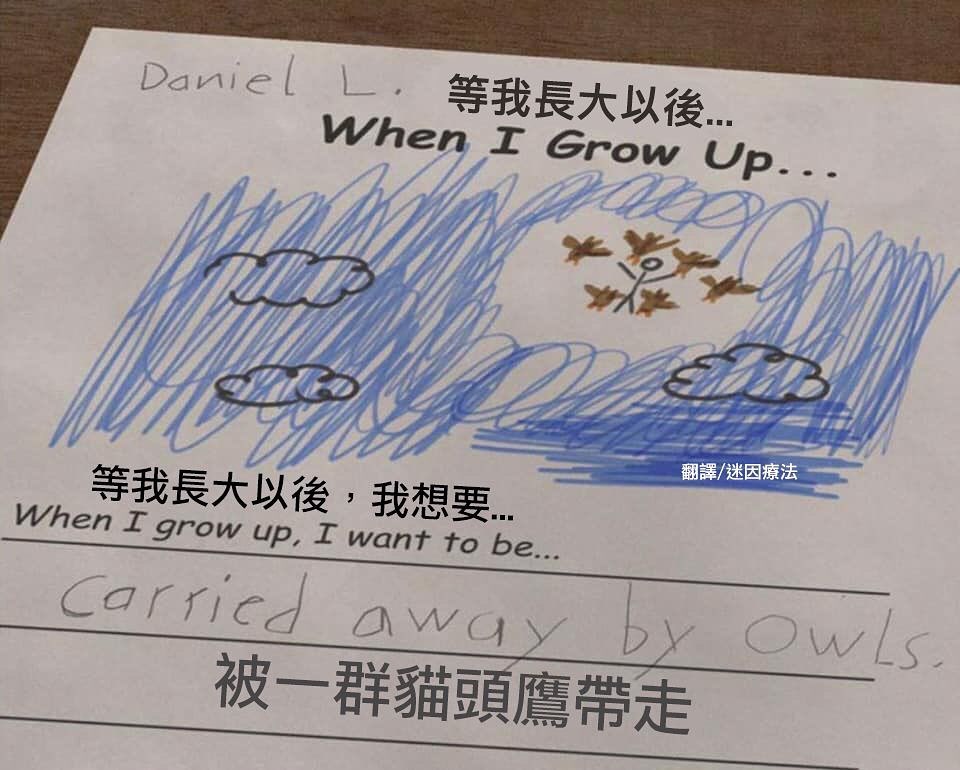 Daniel L.
等我長大以後...
When I Grow Up...
翻譯/迷因療法
等我長大以後，我想要...
When I grow up, I want to be...
carried away by owls.
被一群貓頭鷹帶走